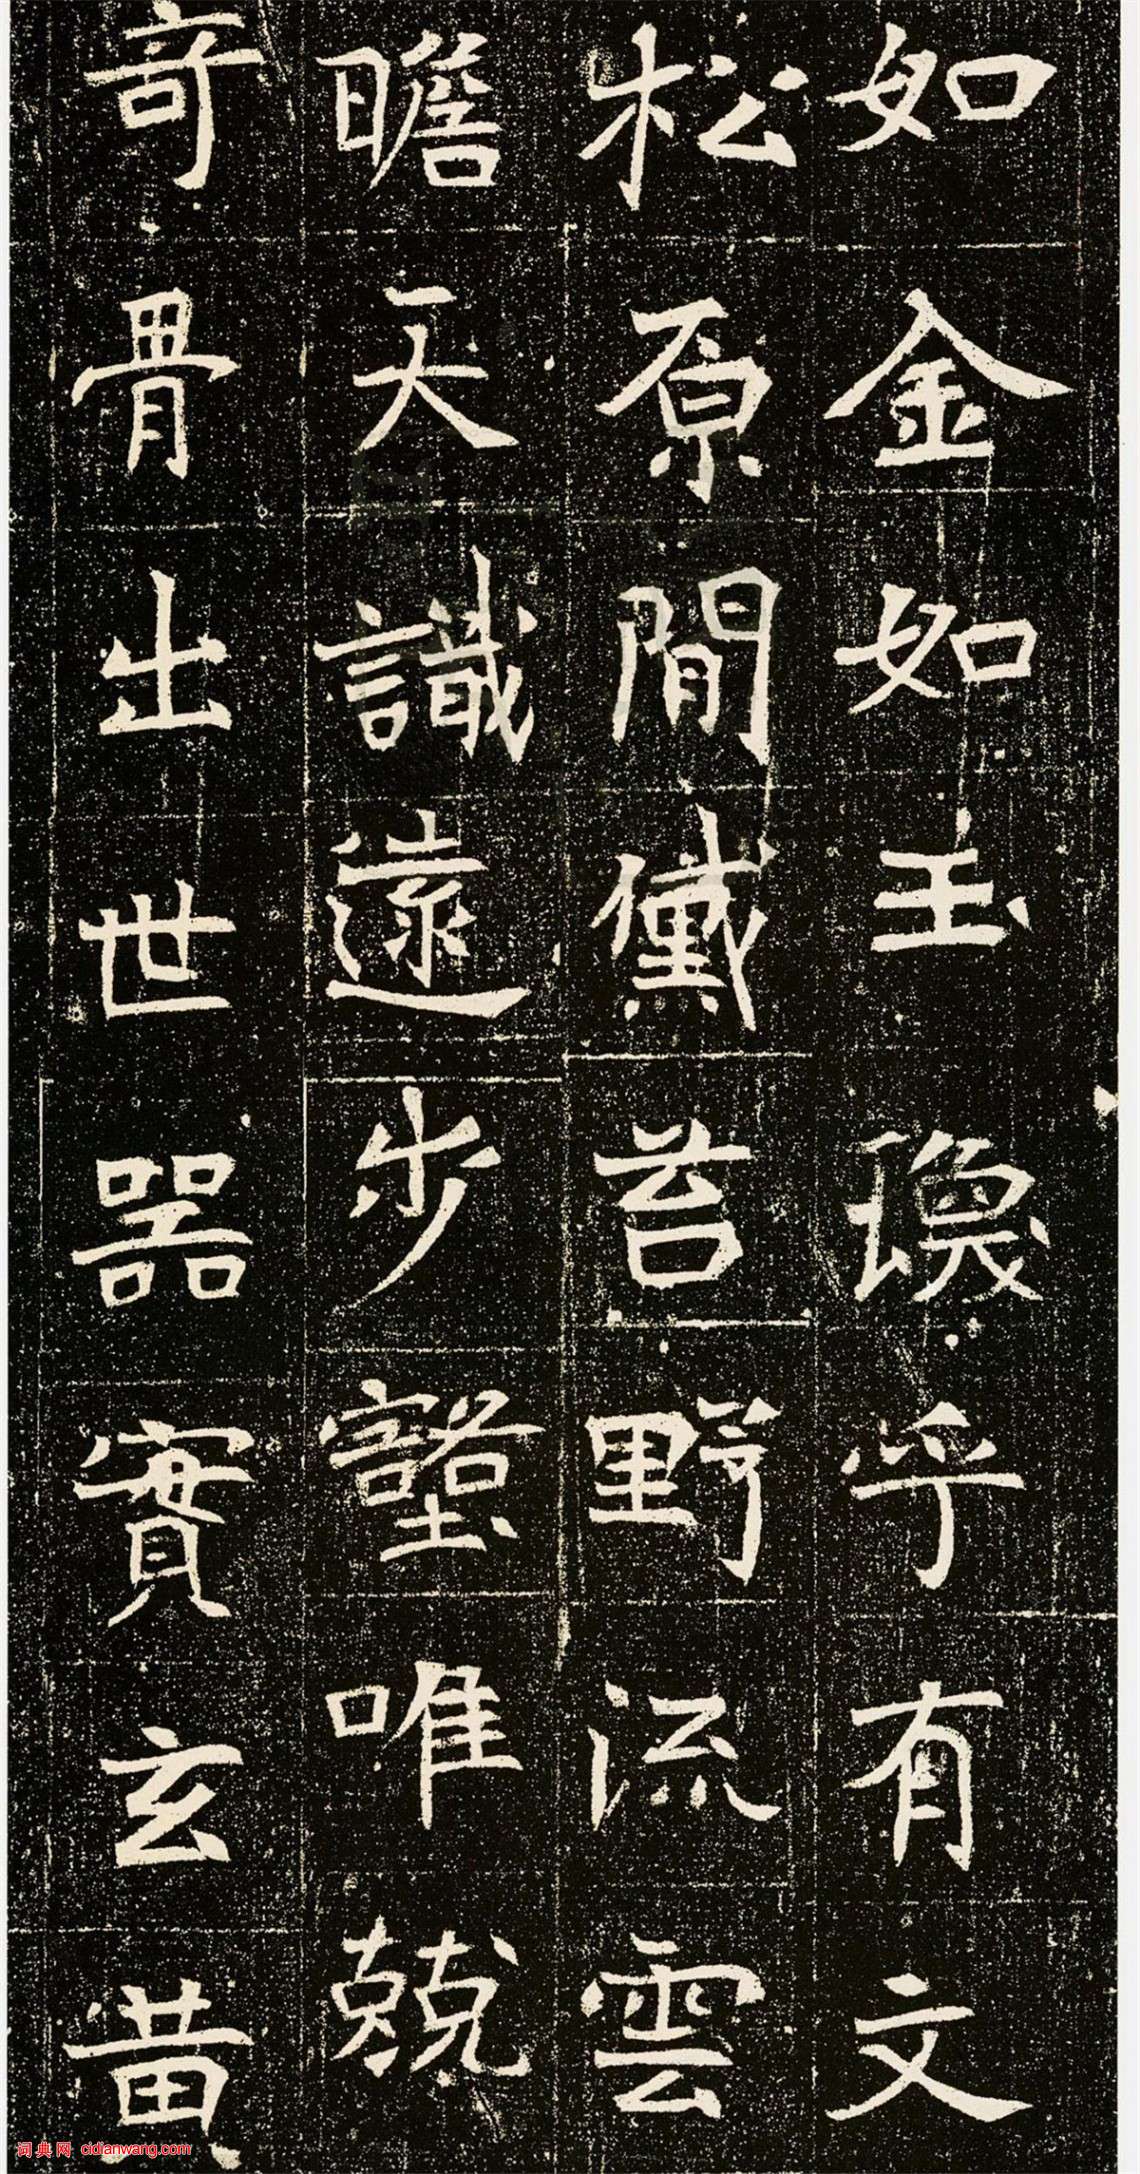 如金如玉瓊乎有文
松原閒儀苔野流雲
瞻天識遠步壑唯兢
奇骨出世器實玄黃
词典网 cidianwang.com